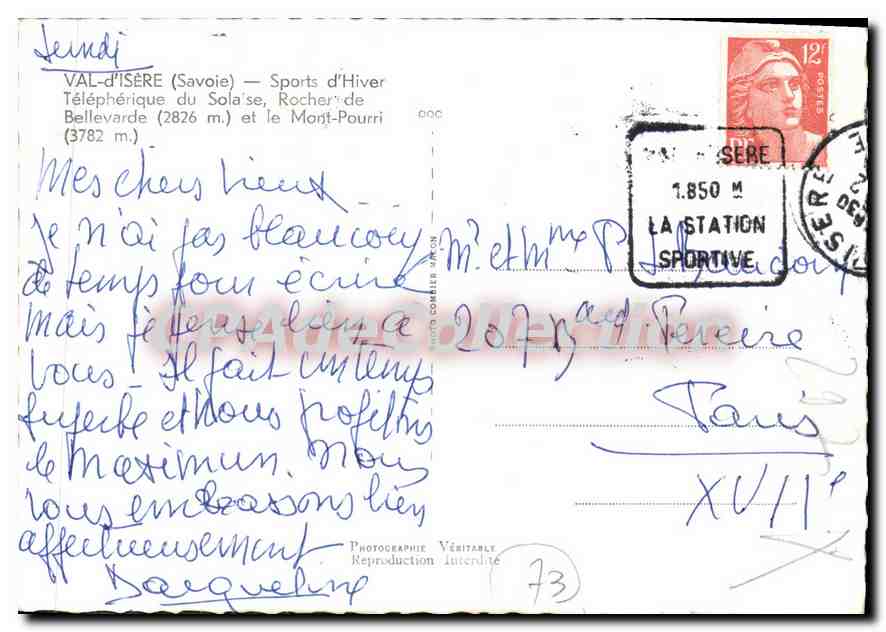 Lundi
VAL-d'ISÈRE (Savoie) — Sports d'Hiver
Téléphérique du Solaise, Rocher de
Bellevarde (2826 m.) et le Mont-Pourri
(3782 m.)
Mes chers vieux
Je n'ai pas beaucoup
de temps pour écrire
mais je pense bien à
vous. Il fait un temps
superbe et nous profitons
le maximum. Nous
vous embrassons bien
affectueusement
Jacqueline
DOC
PHOTO COMBIER MACON
12F
POSTES
SERE
1.850 M
LA STATION
SPORTIVE
M. et Mme P.
207 Bd Pereire
Paris
XVIIe
PHOTOGRAPHIE VÉRITABLE
Reproduction Interdite
73
CPA de Collection